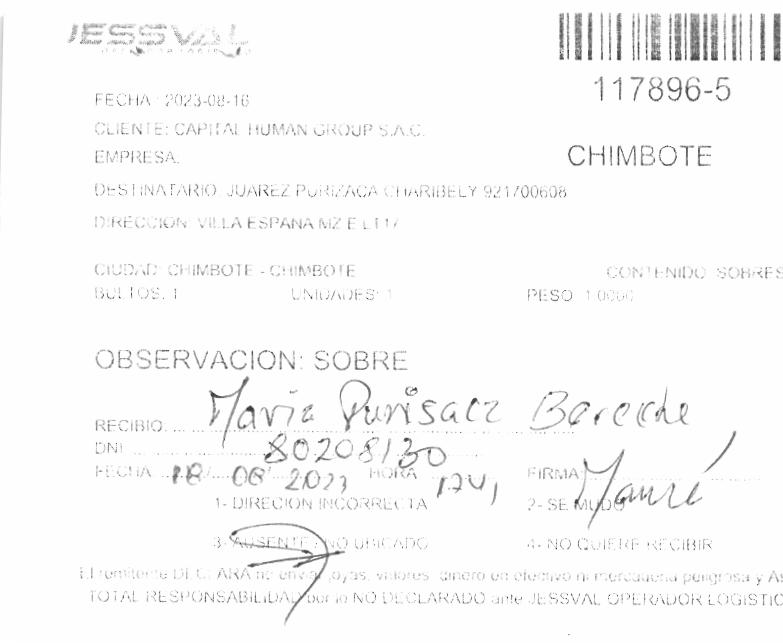 JESSVAL
117896-5
FECHA : 2023-08-16
CLIENTE: CAPITAL HUMAN GROUP S.A.C.
EMPRESA:
CHIMBOTE
DESTINATARIO: JUAREZ PURIZACA CHARIBELY 921700608
DIRECCION: VILLA ESPANA MZ E LT17
CIUDAD: CHIMBOTE - CHIMBOTE CONTENIDO: SOBRES
BULTOS: 1 UNIDADES: 1 PESO: 1.0000
OBSERVACION: SOBRE
RECIBIO: Maria Purisaca Bereche
DNI: 80208130
FECHA 18/08/2023 HORA 1741 FIRMA
1- DIRECION INCORRECTA 2- SE MUDO
3- AUSENTE / NO UBICADO 4- NO QUIERE RECIBIR
El remitente DECLARA no enviar joyas, valores, dinero en efectivo ni mercaderia peligrosa y
TOTAL RESPONSABILIDAD por lo NO DECLARADO ante JESSVAL OPERADOR LOGISTIC